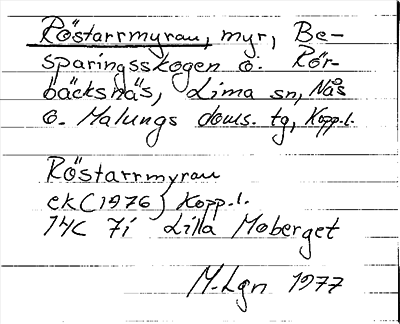 Röstarrmyran, myr, Be-
sparingsskogen o. Rör-
bäcksnäs, Lima sn, Nås
o. Malungs doms. tg, Kopp.l.
Röstarrmyran
ekC1976) Kopp.l.
14C 7i Lilla Moberget
M.Lgn 1977